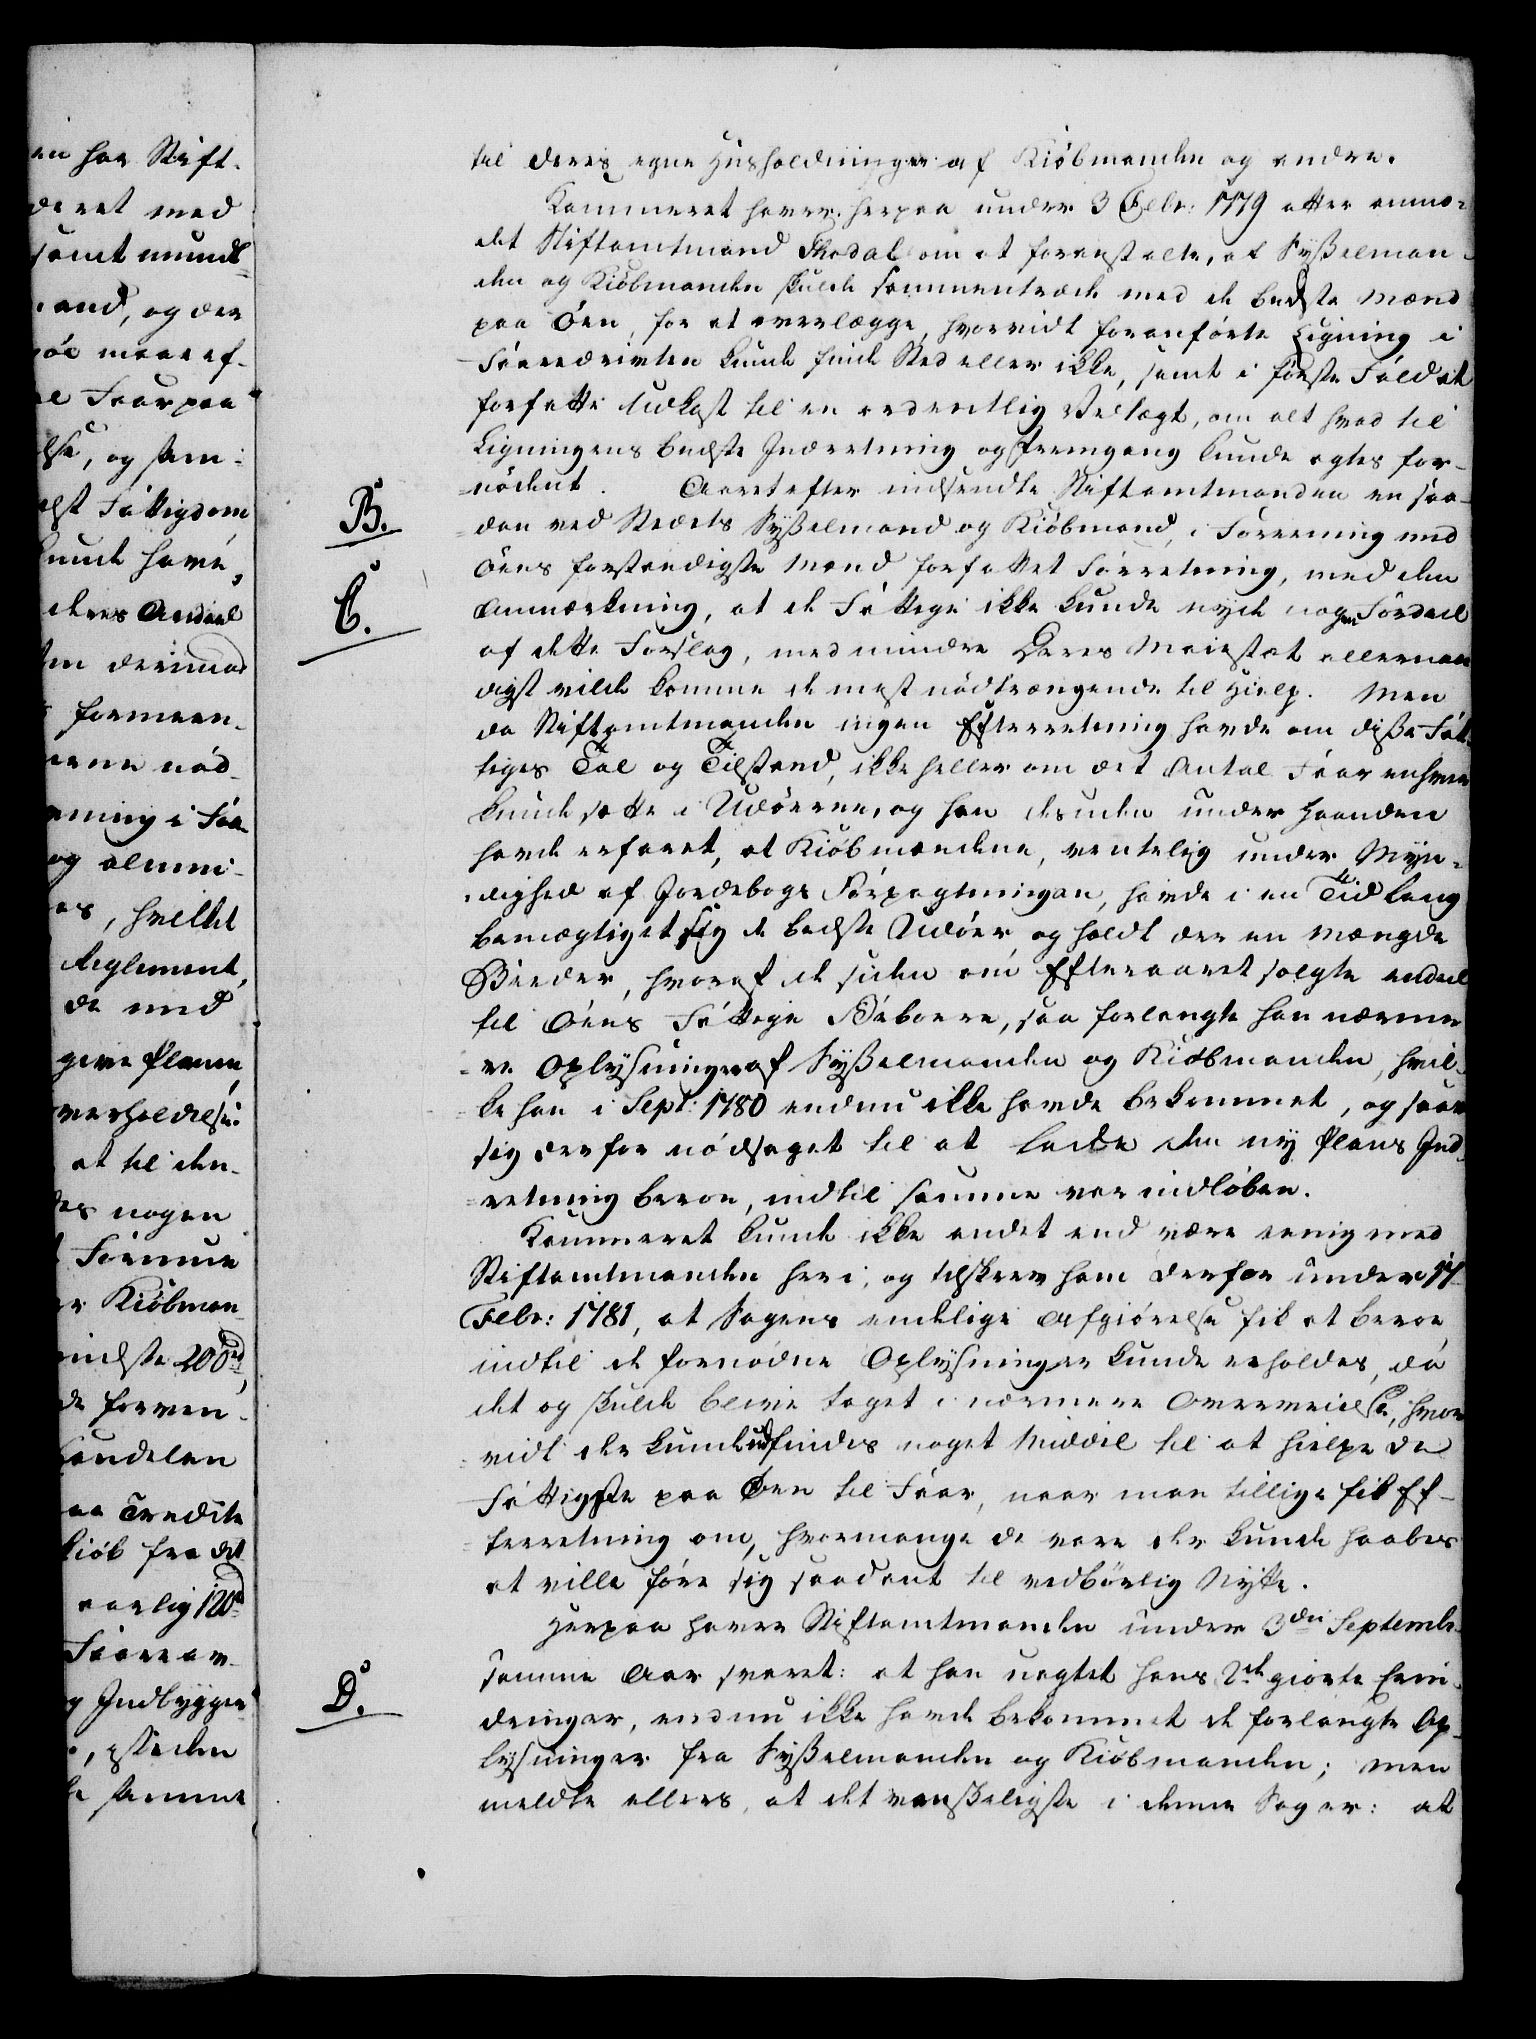 en har Stift-
deret med
samt mundt-
mand, og der
e Faar paa
else, og sam-
Fattigdom
kunde have,
deres Andeel
derimod
formeen-
nød-
ning i Faa-
og almin-
es, hvilket
Reglement,
de med
give Planen
verholdelse:
at til den-
des nogen
Formue
er Kiøbman-
mindste 200 rd
de forven-
Handelen
aa Credite
Kiøb fra det
aarlig 120 rd
Faareav-
g Indbygger
samme
til deres egne Huusholdninger af Kiøbmanden og andre.
Kammeret haver herpaa under 3 Febr: 1779 atter anmo-
det Stiftamtmand Thodal om at foranstalte, at Sysselman-
den og Kiøbmanden skulde sammentræde med de bedste Mænd
paa Øen, for at overlægge, hvorvidt foranførte Ligning i
Faaredrivten kunde finde Sted eller ikke, samt i første Fald at
forfatte Udkast til en ordentlig Vedtægt, om alt hvad til
Ligningens bedste Indretning og Fremgang kunde agtes for-
nødent. Aaret efter indsendte Stiftamtmanden en saa-
dan ved Stedets Sysselmand og Kiøbmand, i Forening med
B.
Øens forstandigste Mænd forfattet Forretning, med den
C.
Anmærkning, at de Fattige ikke kunde nyde nogen Fordeel
af dette Forslag, medmindre Deres Majestæt allernaa-
digst vilde komme de mest nødtrængende til Hielp. Men
da Stiftamtmanden ingen Efterretning havde om disse Fat-
tiges Tal og Tilstand, ikke heller om det Antal Faar enhver
kunde sætte i Udøerne, og han desuden under Haanden
havde erfaret, at Kiøbmændene, ventelig under Myn-
dighed af Jordebogs Forpagtningen, havde i en Tid lang
bemægtiget sig de bedste Udøer, og holdt der en Mængde
Bæder, hvoraf de siden om Efteraaret solgte endeel
til Øens Fattige Beboere, saa forlangte han nærme-
re Oplysninger af Sysselmanden og Kiøbmanden, hvil-
ke han i Sept: 1780 endnu ikke havde bekommet, og saae
sig derfor nødsaget til at lade den ny Plans Ind-
retning beroe, indtil samme var indløben.
Kammeret kunde ikke andet end være eenig med
Stiftamtmanden heri, og tilskrev ham derfor under 17
Febr: 1781, at Sagens endelige Afgiørelse fik at beroe,
indtil de fornødne Oplysninger kunde erholdes, da
det og skulde blive taget i nærmere Overveielse, hvor-
vidt der kunde udfindes noget Middel til at hielpe de
Fattigste paa Øen til Faar, naar man tillige fik Ef-
terretning om, hvormange de vare der kunde haabes
at ville føre sig saadant til vedbørlig Nytte.
Herpaa haver Stiftamtmanden under 3die Septembr
samme Aar svaret: at han uagtet hans 2de giorte Erin-
D.
dringer, endnu ikke havde bekommet de forlangte Op-
lysninger fra Sysselmanden og Kiøbmanden; men
meldte ellers, at det vanskeligste i denne Sag er: at